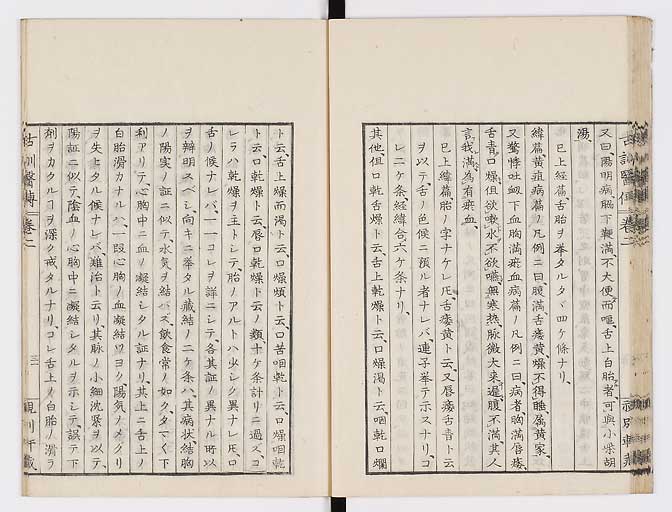 又曰陽明病脇下鞕滿不大便而嘔、舌上白胎者可與小柴胡
湯、
已上經篇舌胎ヲ擧タルタヾ四ケ條ナリ、
緯篇黄疸病篇ノ凡例ニ曰腹滿、舌痿黄、燥不得睡、属黄家、
又驚悸吐衂下血胸滿瘀血病篇ノ凡例ニ曰、病者胸滿唇痿
舌青口燥但欲嗽水、不欲嚥、無寒熱、脉微大來遲、腹不滿、其人
言我滿、為有瘀血、
已上緯篇、胎ノ字ナケレ𪜈、舌痿黄ト云、又唇痿舌青ト云
ヲ以テ舌ノ色候ニ預ル者ナレバ、連子挙テ示スナリ、コ
レ二ケ条、經緯合六ケ条ナリ、
其他但口乾舌燥ト云、舌上乾燥ト云、口燥渇ト云、咽乾口爛
ト云、舌上燥而渇ト云、口燥煩ト云、口苦咽乾ト云、口燥咽乾
ト云、口乾燥ト云、唇口乾燥ト云ノ類十ケ条計リニ過ズ、コ
レラハ乾燥ヲ主トシテ、胎ノアルトハ少シク異ナレ𪜈、口
舌ノ候ナレバ、一一コレヲ詳ニシテ各其証ノ異ナル所以
ヲ辨明スベシ、向キニ挙タル蔵結ノ二ケ条ハ、其病状結胸
ノ陽実ノ証ニ似テ、水気ヲ結バズ、飲食常ノ如ク、タヾ下
利アリテ、心胸中ニ血ノ凝結シタル証ナリ、其上ニ舌上ノ
白胎滑カナルハ、一段心胸ノ血凝結ツヨク陽気ノメグリ
ヲ失ヒタル候ナレバ、難治ト云リ、其脉ノ小細沈緊ヲ以テ、
陽証ニ似テ、陰血ノ心胸中ニ凝結シタルヲ示シテ、誤テ下
剤ヲカクルコヲ深ク戒タルナリ、コレ舌上ノ白胎ノ滑ラ
古訓醫傳 卷二